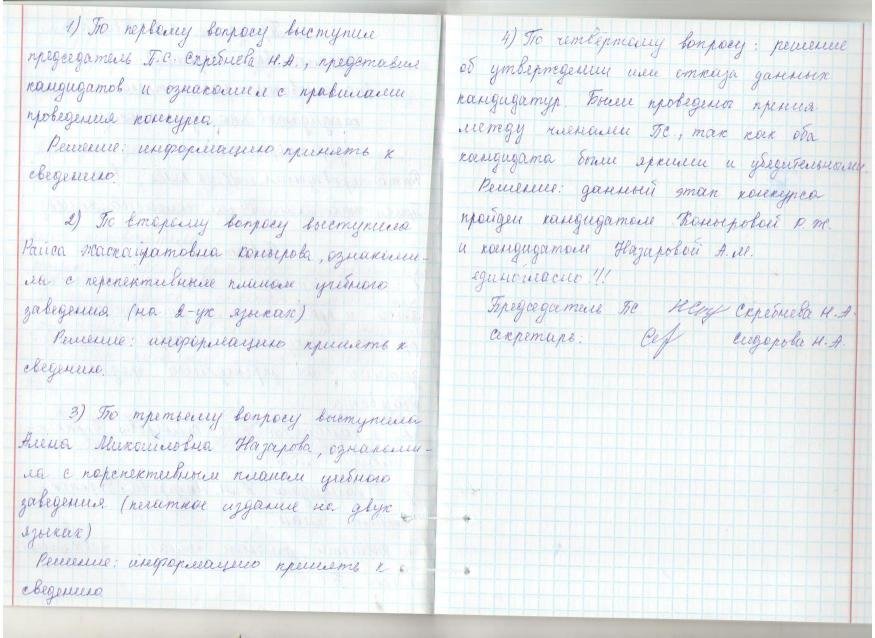 1) По первому вопросу выступил
председатель П.С. Скребнева Н.А., представил
кандидатов и ознакомил с правилами
проведения конкурса.
Решение: информацию принять к
сведению.
2) По второму вопросу выступила
Райса Жаскайратовна Конырова, ознакоми-
ла с перспективным планом учебного
заведения (на 2-ух языках)
Решение: информацию принять к
сведению.
3) По третьему вопросу выступила
Алена Микайловна Назарова, ознакоми-
ла с порспективным планом учебного
заведения (печатное издание на двух
языках)
Решение: информацию принять к
сведению
4) По четвёртому вопросу: решение
об утверждении или отказа данных
кандидатур. Были проведены прения
между членами ПС, так как оба
кандидата были яркими и убедительными.
Решение: данный этап конкурса
пройден кандидатом Коныровой Р.Ж.
и кандидатом Назаровой А.М.
единогласно!!!
Председатель ПС Скребнева Н.А.
Секретарь: Сидорова Н.А.